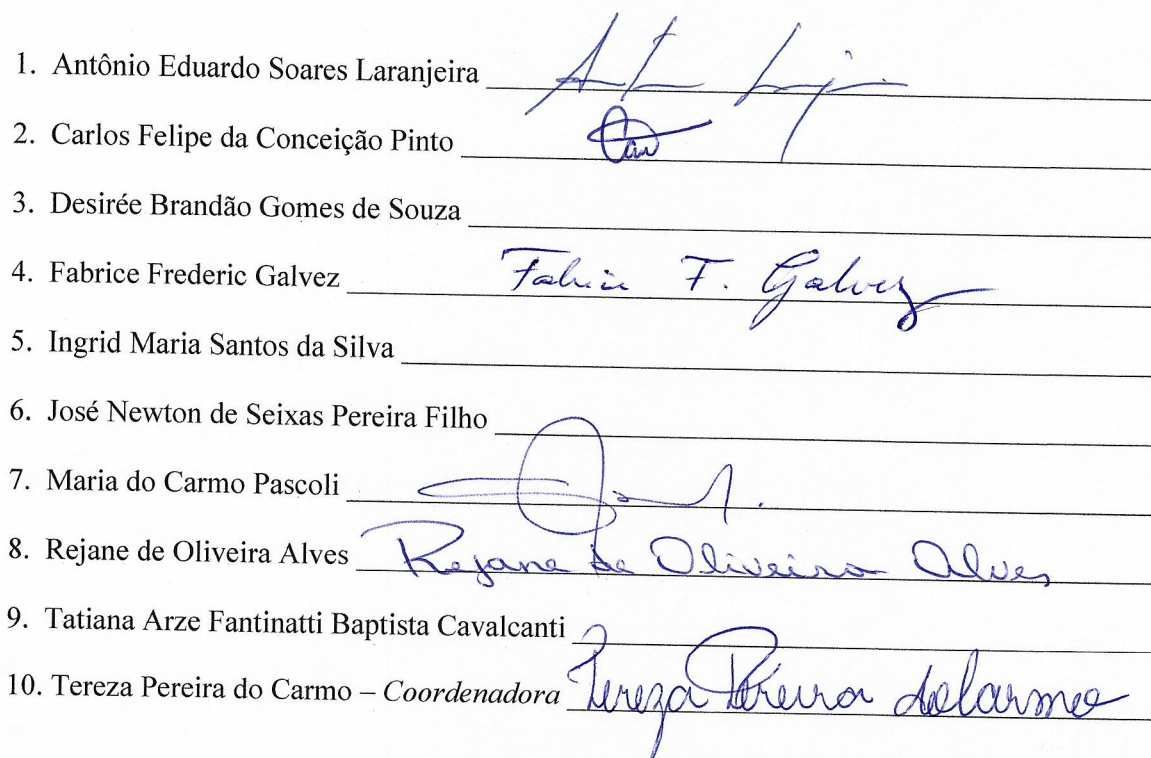 1. Antônio Eduardo Soares Laranjeira
2. Carlos Felipe da Conceição Pinto
3. Desirée Brandão Gomes de Souza
4. Fabrice Frederic Galvez Fabrice F. Galvez
5. Ingrid Maria Santos da Silva
6. José Newton de Seixas Pereira Filho
7. Maria do Carmo Pascoli
8. Rejane de Oliveira Alves Rejane de Oliveira Alves
9. Tatiana Arze Fantinatti Baptista Cavalcanti
10. Tereza Pereira do Carmo – Coordenadora Tereza Pereira do Carmo